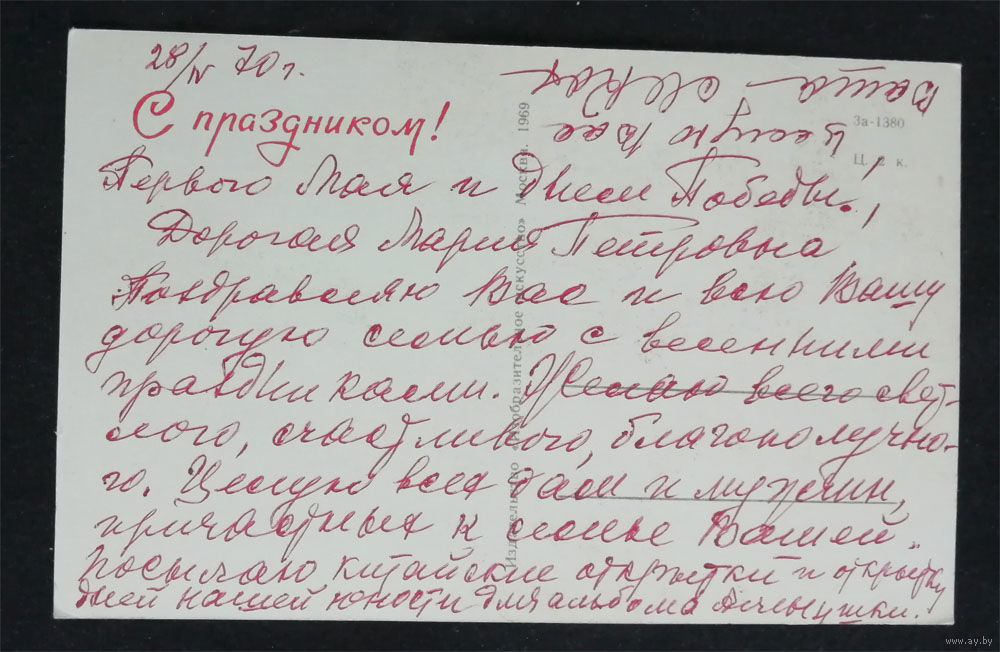 28/IV 70 г.
С праздником!
Первого Мая и Днем Победы!,
Дорогая Мария Петровна
Поздравляю Вас и всю Вашу
дорогую семью с весенними
праздниками. Желаю всего свет-
лого, счастливого, благополучно-
го. Целую всех дам и мужчин,
причастных к семье Вашей.
Посылаю китайские открытки и открытку
дней нашей юности для альбома
Целую Вас
Ваша
За-1380
Ц. 2 к.
Издательство «Изобразительное искусство» Москва. 1969
www.ay.by